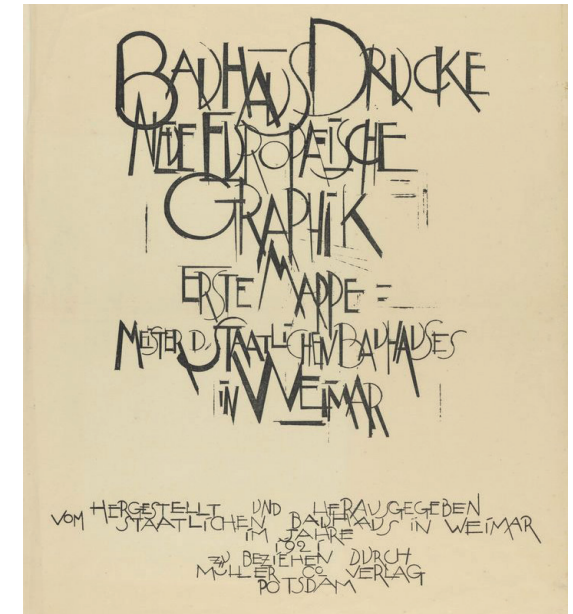 BAUHAUS DRUCKE
NEUE EUROPAEISCHE
GRAPHIK
ERSTE MAPPE
MEISTER D. STAATLICHEN BAUHAUSES
iN WEiMAR
HERGESTELLT UND HERAUSGEGEBEN
VOM STAATLICHEN BAUHAUS iN WEiMAR
iM JAHRE
1921
ZU BEZiEHEN DURCH
MÜLLER & CO VERLAG
POTSDAM